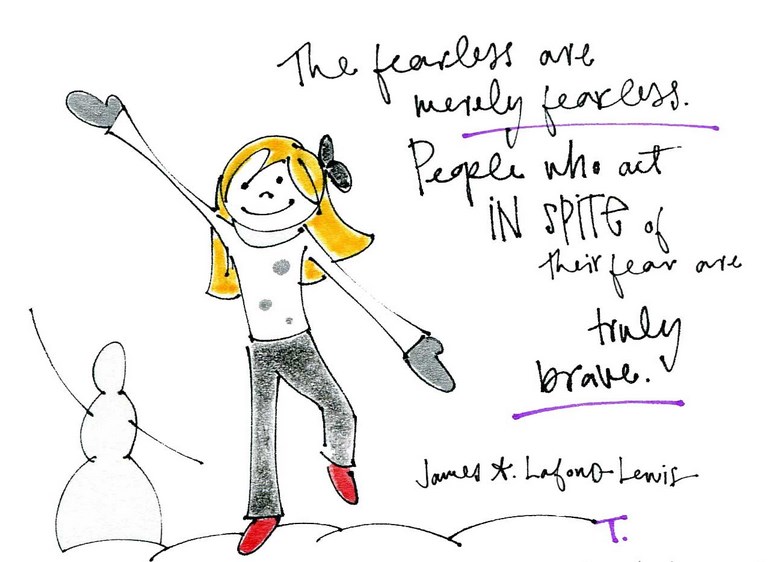 The fearless are
merely fearless.
People who act
IN SPITE of
their fear are
truly
brave.
James A. Lafond-Lewis
T.